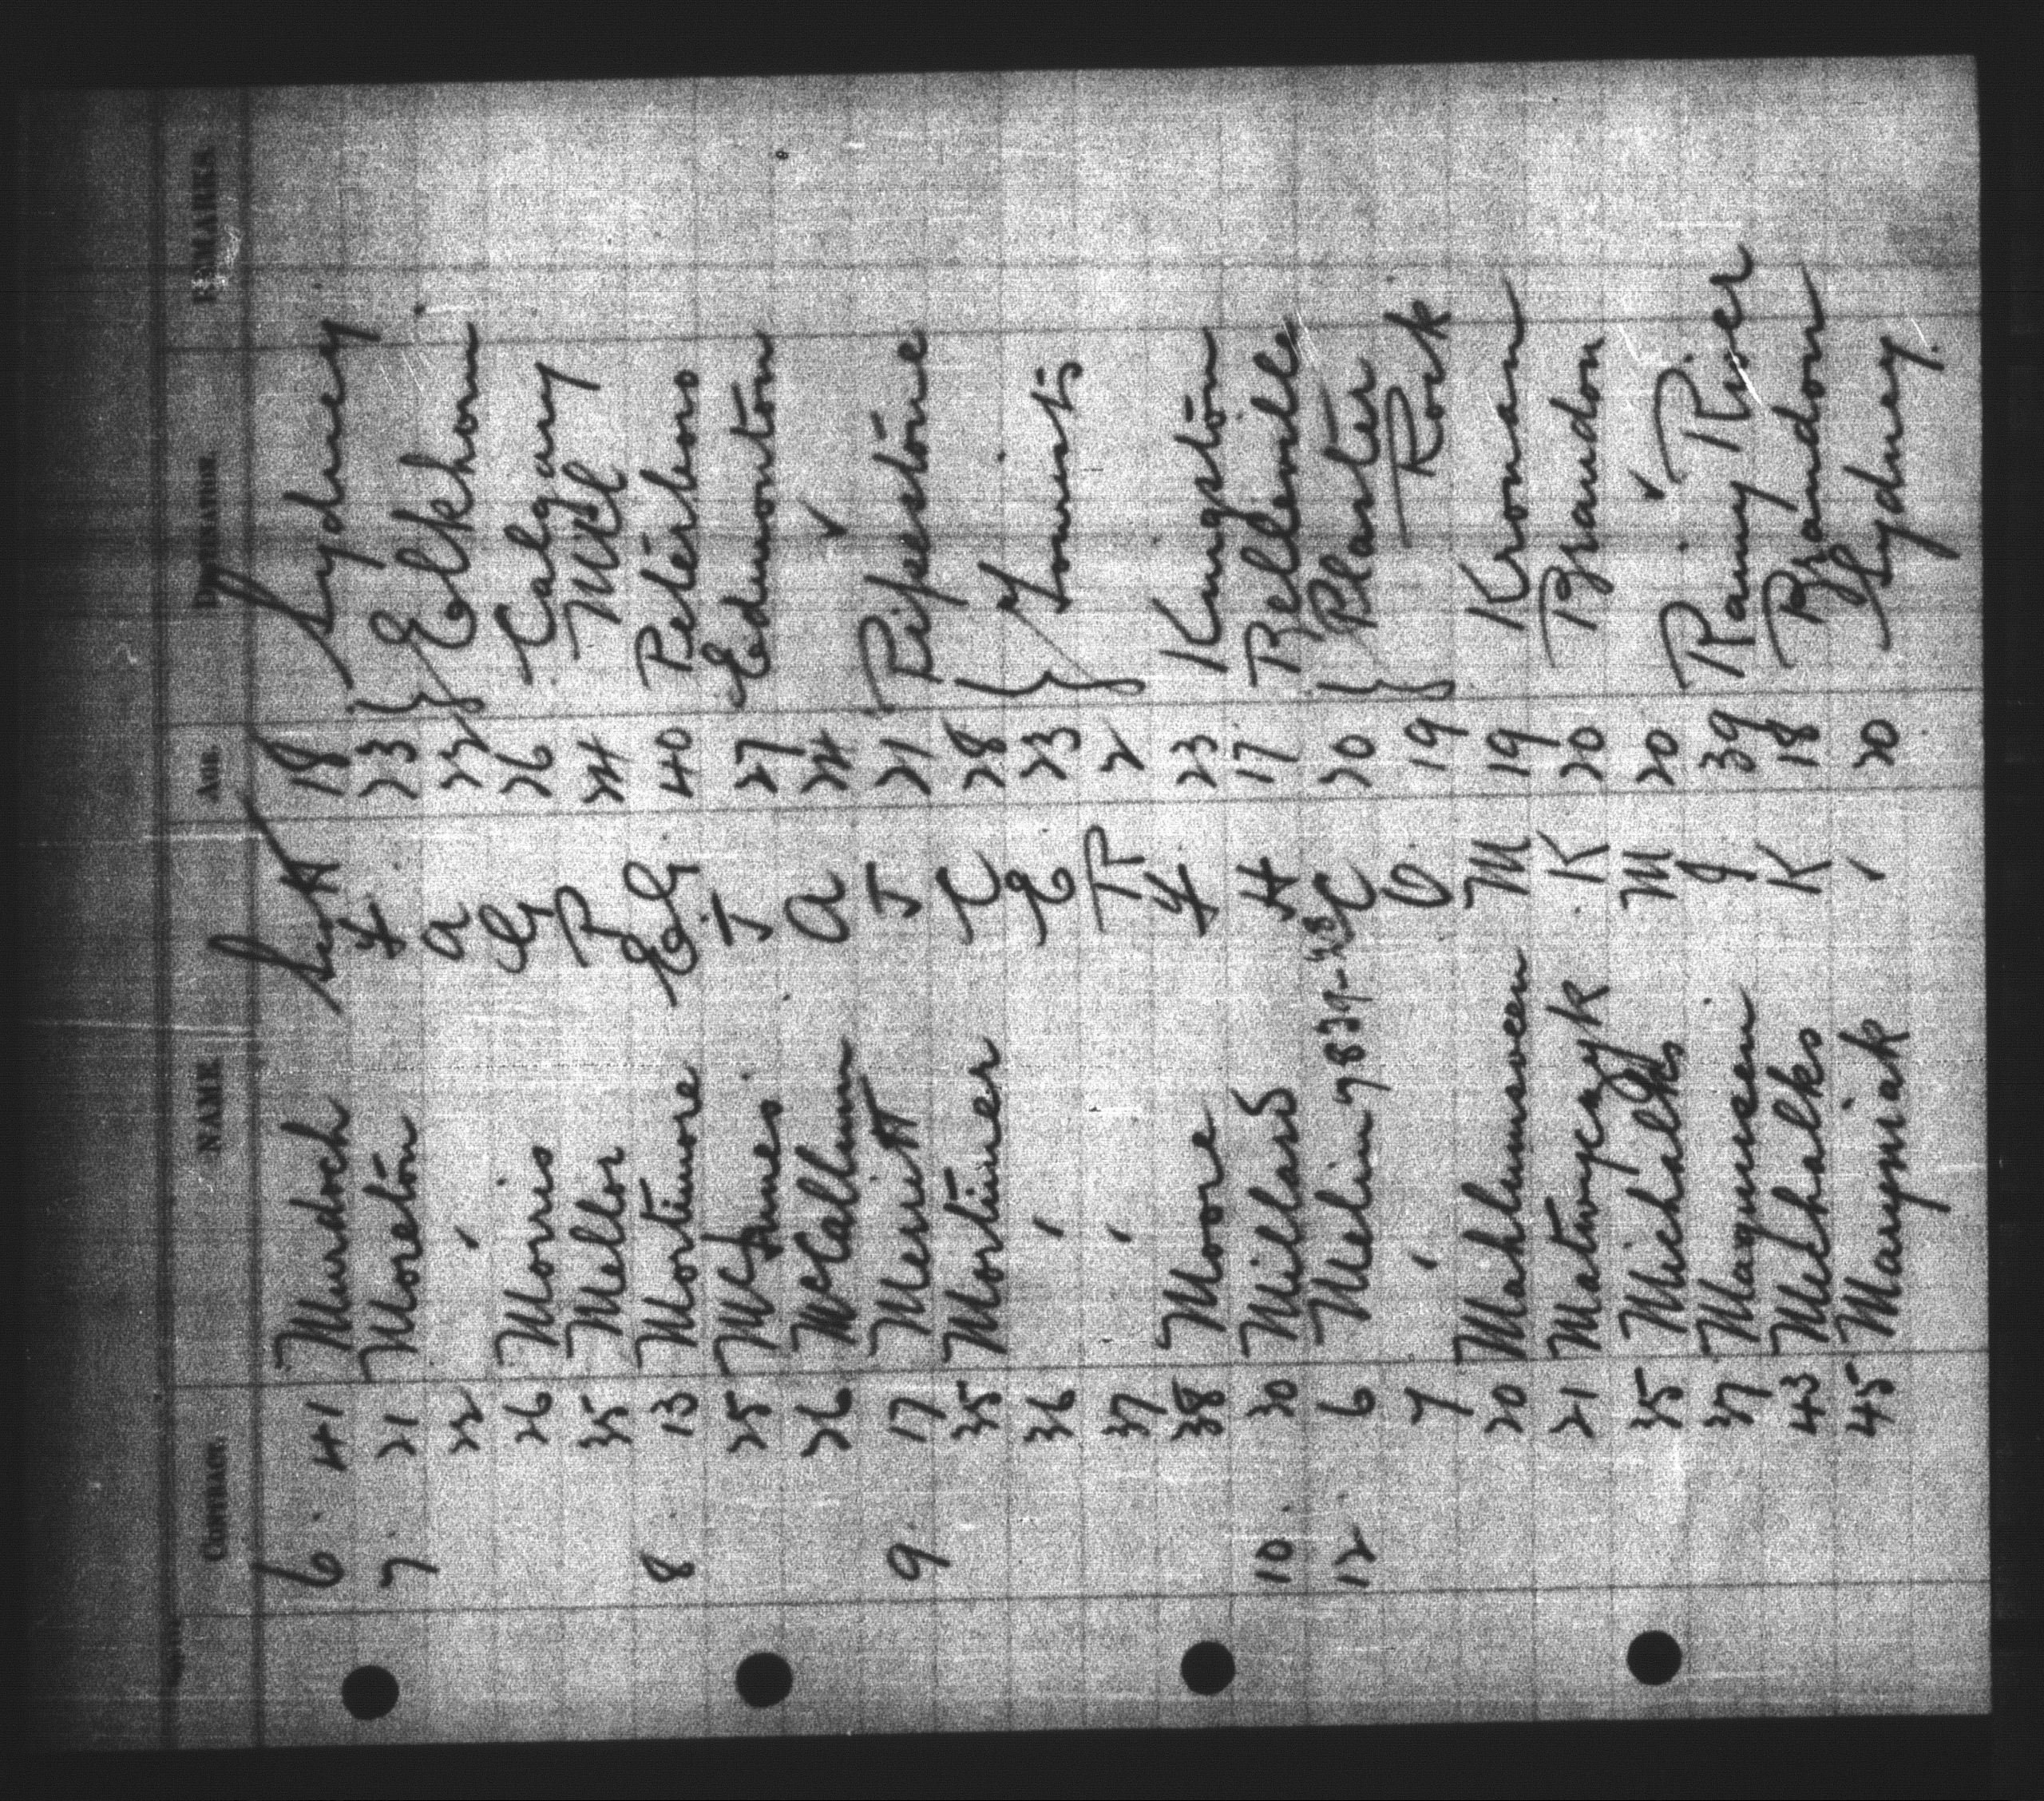 CONTRACT. NAME AGE. DESTINATION. REMARKS.
6. 41 Murdoch Scott 18 Sydney
7. 21 Moreton F 23 } Elkhorn
22 " A 22
26 Morris G 26 Calgary
35 Mellor P 24 Mill
8 13 Mortimore EG 40 Peterboro
25 McInnes J 27 Edmonton
26 McCallum A 24 "
9. 17 Merritt J 21 Pipestone
35 Mortimer C 28 }
36 " E 23 } Tourists
37 " R 2 }
38 Moore F 23 Kingston
10. 30 Millard H 17 Belleville
12. 6 Melin 7839-48 C 20 } Plaster
7 " O 19 } Rock
20 Mahlumsveen M 19 Kronan
21 Matwyczyk K 20 Brandon
35 Michalks M 20 "
37 Magnussen J 39 Rainy River
43 Michalks K 18 Brandon
45 Mayniak I 20 Sydney.